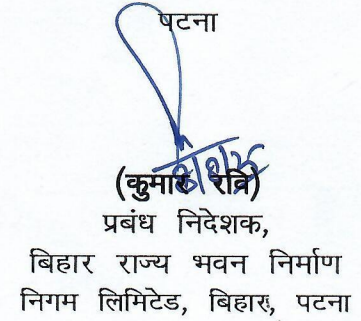 पटना
(कुमार रवि)
प्रबंध निदेशक,
बिहार राज्य भवन निर्माण
निगम लिमिटेड, बिहार, पटना